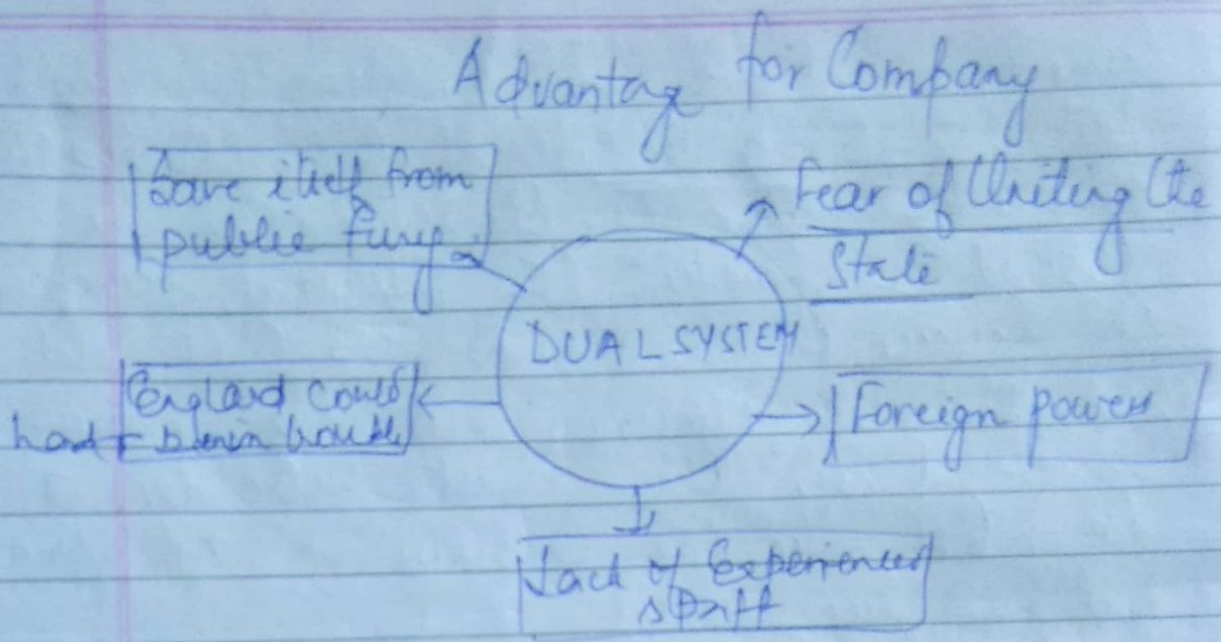 Advantage for Company
Save itself from
public fury
Fear of Uniting the
State
DUAL SYSTEM
England could
had been in trouble
Foreign power
Lack of Experienced
staff